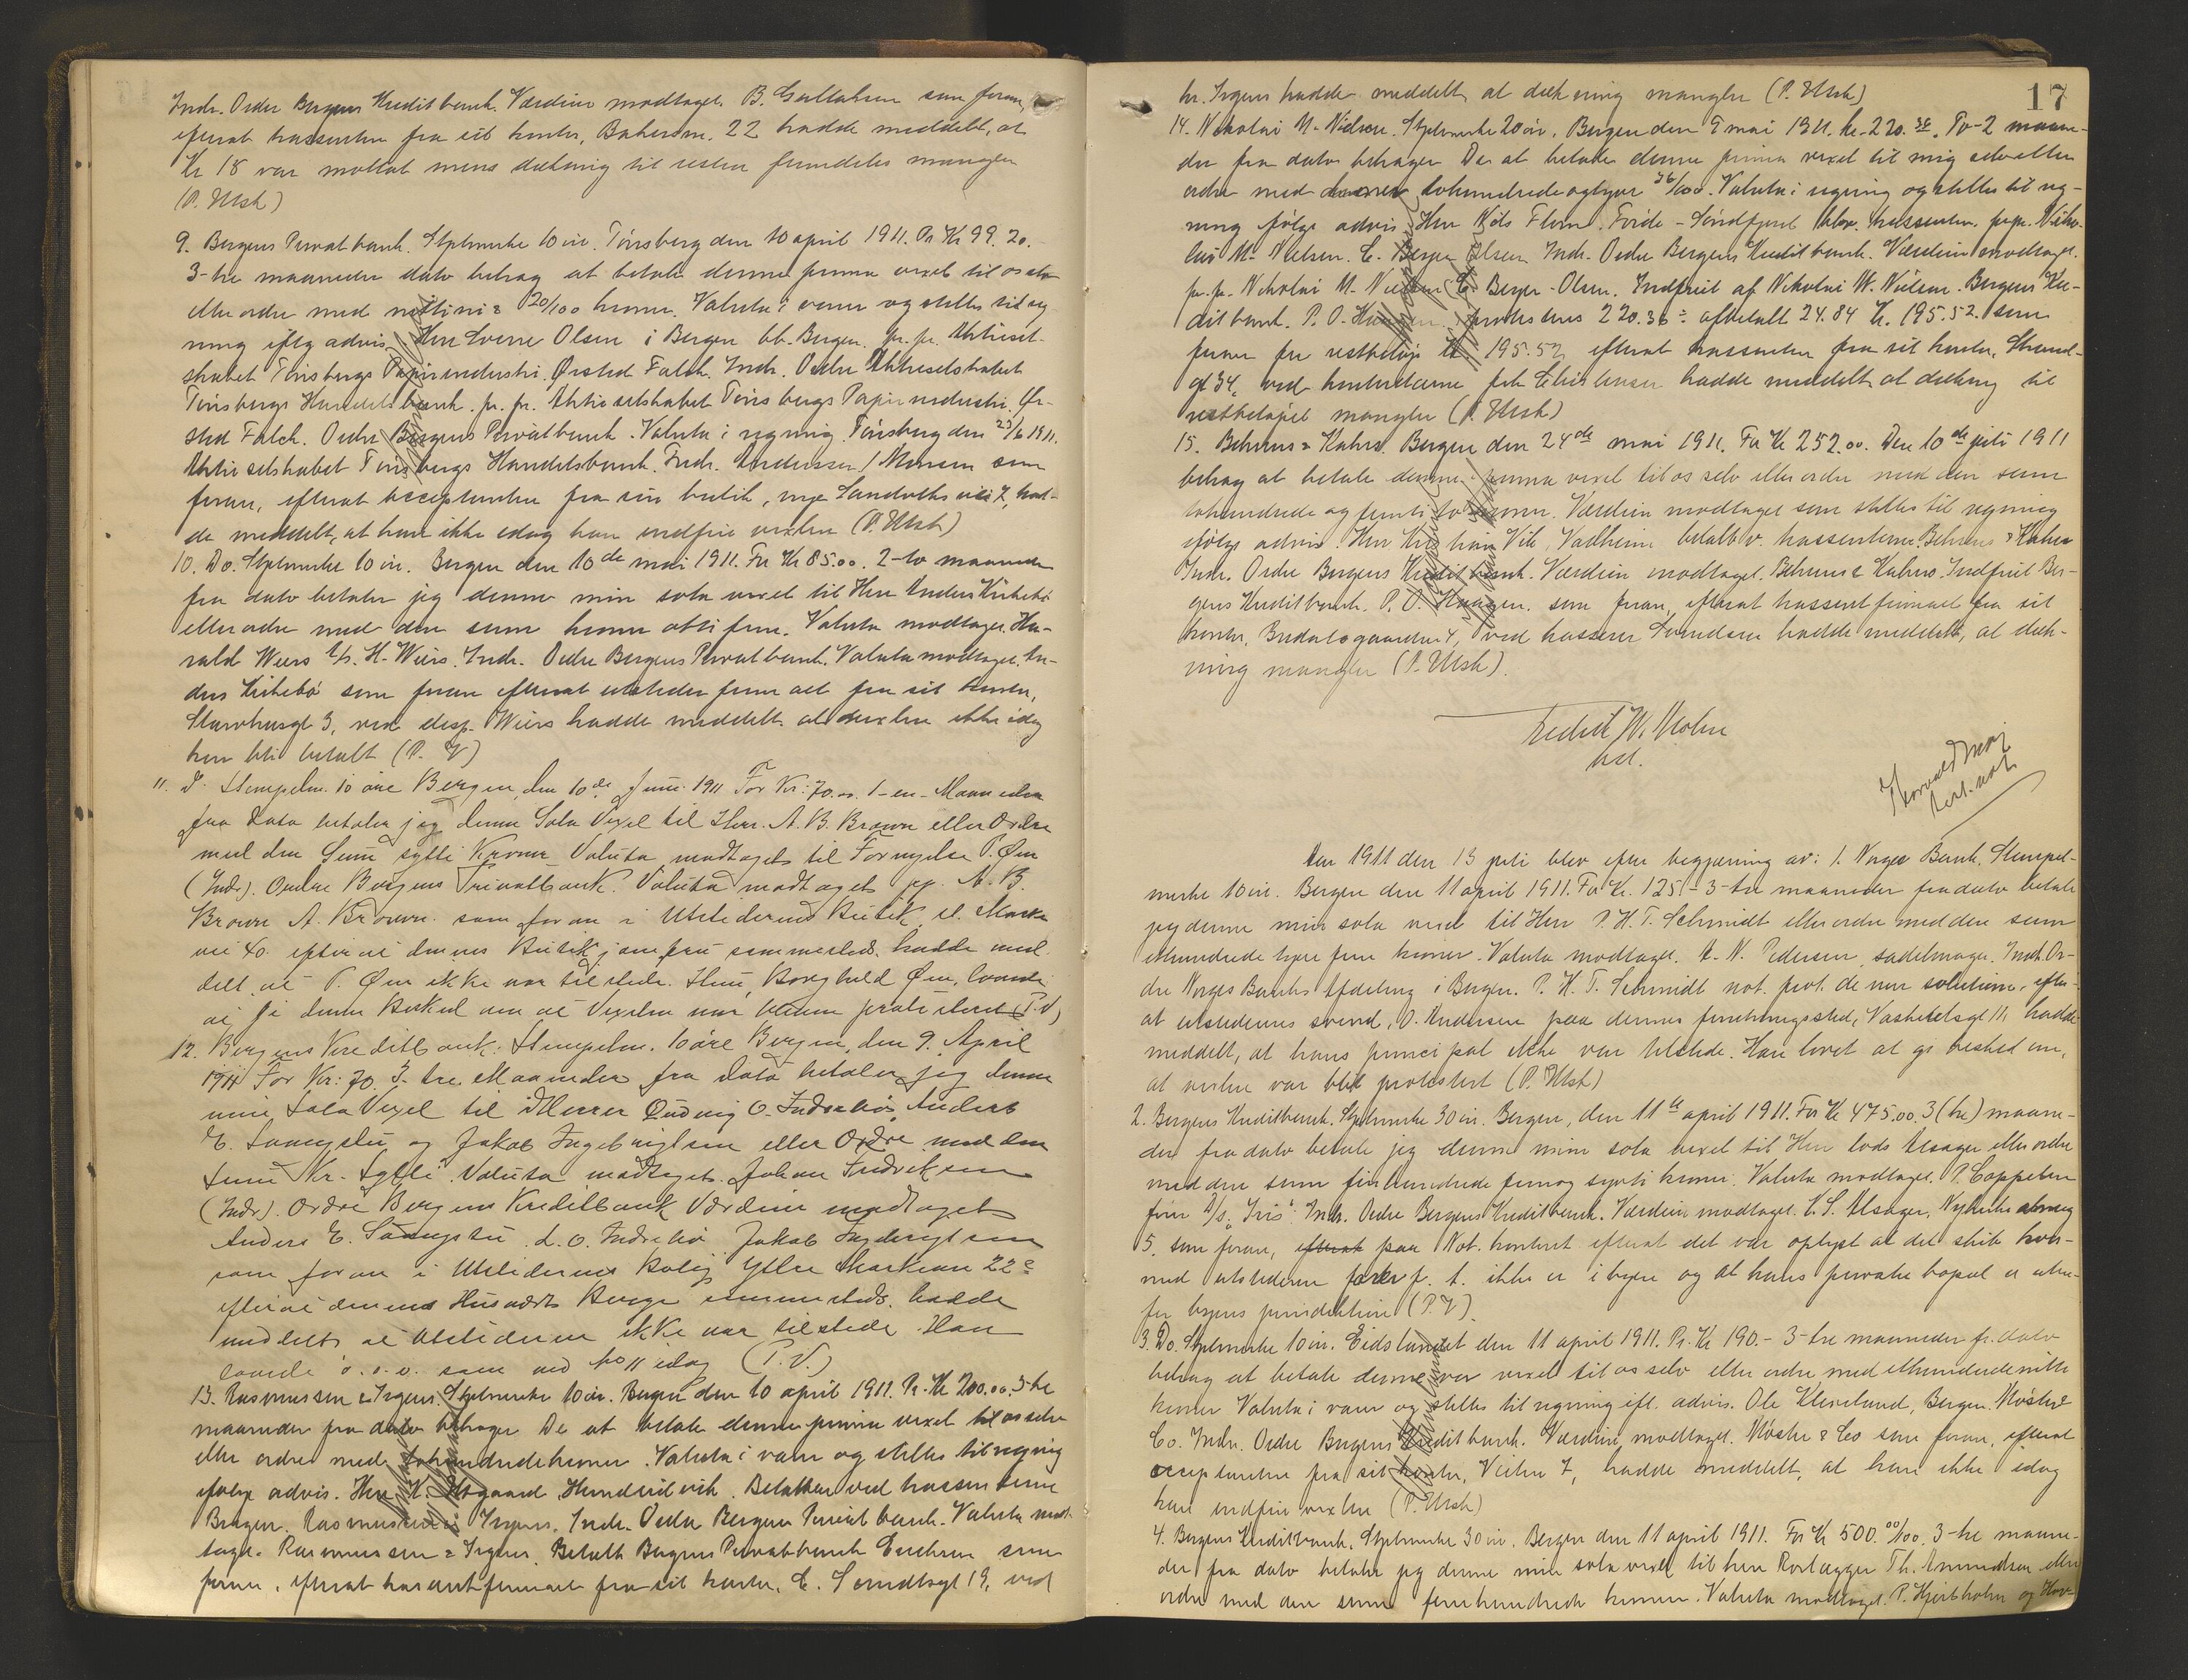 Indr. Ordre Bergens Kreditbank. Værdien modtaget. B. som foran,
efterat kassenten fra sit kontor, 22 hadde meddelt, at
Kr 18 var mottat mens dækning til resten fremdeles mangler
(P. Utsk)
9. Bergens Privatbank. Stplmerke 10 øre. Tönsberg den 10 april 1911. Pr Kr 99.20.
3-tre maaneder dato behag at betale denne prima vexel til os selv
eller ordre med nittini & 20/100 kroner. Valuta i varer og stilles til reg-
ning iflg advis. Herr Sverre Olsen i Bergen bb. Bergen. pr. pr. Aktiesel-
skabet Tönsbergs Papirindustri. Ørsted Falch. Indr. Ordre Aktieselskabet
Tönsbergs Handelsbank. pr. pr. Aktieselskabet Tönsbergs Papirindustri. Ør-
sted Falch. Ordre Bergens Privatbank. Valuta i regning. Tönsberg den 23/6 1911.
Aktieselskabet Tönsbergs Handelsbank. Indr. Andersen / Monsen som
foran, efterat acceptanten fra sin butik, nye Sandviksvei 7, had-
de meddelt, at han ikke idag kan indfrie vexlen (P. Utsk)
10. Do. Stplmerke 10 øre. Bergen den 10de mai 1911. For Kr 85.00. 2-to maaneder
fra dato betaler jeg denne min sola vexel til Herr Anders Kirkebö
eller ordre med den sum kroner otti fem. Valuta modtaget. Ha-
rald Wiers H. Wiers. Indr. Ordre Bergens Privatbank. Valuta modtaget. An-
ders Kirkebö som foran efterat utsteder firmaet fra sit kontor,
3, ved disp. Wiers hadde meddelt at vexlen ikke idag
kan bli betalt (P. V)
11. D. Stempelm. 10 øre Bergen, den 10de Juni 1911 For Kr: 70.00. 1-en- Maaneder
fra Dato betaler jeg denne Sola Vexel til Herr. A. B. Brown eller Ordre
med den Sum sytti Kroner Valuta modtaget til Fornyelse P. Øen
(Indr). Ordre Bergens Privatbank. Valuta modtaget pp. A. B.
Brown A. Brown. som foran i Utstederens Butik,
vei 40. efterat dennes Butikjomfru sammesteds. hadde med
delt at P. Øen ikke var tilstede. Hun, Borghild Øen, lovede
at gi denne Besked om at Vexelen var bleven protesteret (P.V)
12. Bergens Kreditbank: Stempelm. 10 øre Bergen, den 9. April
1911 For Kr: 70. 3- tre. Maaneder fra Dato betaler jeg denne
min Sola Vexel til d'Herrer Ludvig O. Indrebö, Anders
E. og Jakob Ingebrigtsen eller Ordre med den
Sum Kr. Sytti Valuta modtaget. Johan Indreksen
(Indr). Ordre Bergens Kreditbank Værdien modtaget
Anders E. L. O. Indrebö. Jakob Ingebrigtsen
som foran i Utstederens Bolig Ytre Markvei 22c
efterat dennes Husvært Berge sammesteds. hadde
meddelt at Utstederen ikke var tilstede. Han
lovede o.s.v. som ved No 11 idag (P.V.)
13. Rasmussen & Irgens. Stplmerke 10 øre. Bergen den 10 april 1911. Pr. Kr 200.00. 3 tre
maaneder fra dato behager De at betale denne prima vexel til os selv
eller ordre med tohundrede kroner. Valuta i varer og stilles til regning
ifølge advis. Herr Betalbar ved kassenterne
Bergen. Rasmussen & Irgens. Indr. Ordre Bergens Privatbank. Valuta mod-
taget. Rasmussen & Irgens. Betalt Bergens Privatbank som
foran, efterat kassentfirmaet fra sit kontor, C. Sundtsgt 19, ved
17
hr. Irgens hadde meddelt, at dækning mangler (P. Utsk)
14. Nikolai M. Nielsen. Stplmerke 20 øre. Bergen den 9 mai 1911. Kr. 220.36. To-2 maane-
der fra dato behager De at betale denne prima vexel til mig selv eller
ordre med tohundrede og tyve 36/100. Valuta i regning og stilles til reg-
ning følge advis. Herr Nils Förde - Söndfjord kassenten. pr. pr. Niko-
lai M. Nielsen. C. Beyer Olsen. Indr. Ordre Bergens Kreditbank. Værdien modtaget.
pr. pr. Nikolai M. Nielsen C. Beyer-Olsen. Indfriet af Nikolai M. Nielsen. Bergens Kre-
ditbank. P. O. protesteres 220.36 afbetalt 24.84 Kr. 195.52. som
foran for restbeløp Kr. 195.52, efterat kassenten fra sit kontor, Strand-
gt 34, ved kontordame frk Christensen hadde meddelt at dækning til
restbeløpet mangler (P. Utsk)
15. Behrens & Kahrs. Bergen den 24de mai 1911. For Kr 252.00. Den 10de juli 1911
behag at betale denne prima vexel til os selv eller ordre med den sum
tohundrede og femti to kroner. Værdien modtaget som stilles til regning
ifølge advis. Herr Kristian Vik, Vadheim betalb. v. kassenterne. Behrens & Kahrs
Indr. Ordre Bergens Kreditbank. Værdien modtaget. Behrens & Kahrs. Indfriet Ber-
gens Kreditbank. P. O. som foran, efterat kassentfirmaet fra sit
kontor, 4, ved kasserer Svendsen hadde meddelt, at dæk-
ning mangler (P. Utsk).
Fredrik W. Mohn
ass.
Aar 1911 den 13 juli blev efter begjæring av: 1. Norges Bank. Stempel-
merke 10 øre. Bergen den 11 april 1911. For Kr. 125 - 3-tre maaneder fra dato betaler
jeg denne min sola vexel til Herr P. H. T. Schmidt eller ordre med den sum
ethundrede tyve fem kroner. Valuta modtaget. A. N. Pedersen, sadelmager. Indr. Or-
dre Norges Banks Afdeling i Bergen. P. H. T. Schmidt not. prot. de non solutione, efter-
at utstederens svend, O. Andersen paa dennes forretningssted, 11, hadde
meddelt, at hans principal ikke var tilstede. Han lovet at gi besked om,
at vexlen var blit protestert (P. Utsk)
2. Bergens Kreditbank. Stplmerke 30 øre. Bergen, den 11te april 1911. For Kr 475.00. 3 (tre) maane-
der fra dato betaler jeg denne min sola vexel til Herr lods Alsager eller ordre
med den sum firehundrede fem og sytti kroner. Valuta modtaget. P. Cappelen
förer D/S "Iris". Indr. Ordre Bergens Kreditbank. Værdien modtaget. L. S. Alsager,
5. som foran, efterat paa Not. kontoret efterat det var oplyst at det skib hvor-
med utstederen farer f. t. ikke er i byen og at hans private bopæl er uten-
for byens jurisdiktion (P. V).
3. Do. Stplmerke 10 øre. Eidslandet den 11 april 1911. Pr. Kr 190.- 3-tre maaneder fr. dato
behag at betale denne vor vexel til os selv eller ordre med ethundrede nitti
kroner Valuta i varer og stilles til regning ifl. advis. Ole Kleveland, Bergen. Møster &
Co. Indr. Ordre Bergens Kreditbank. Værdien modtaget. Møster & Co som foran, efterat
acceptanten fra sit kontor, 7, hadde meddelt, at han ikke idag
kan indfri vexlen (P. Utsk)
4. Bergens Kreditbank. Stplmerke 30 øre. Bergen den 11 april 1911. For Kr 500.00/100. 3-tre maane-
der fra dato betaler jeg denne min sola vexel til herr Th. Amundsen eller
ordre med den sum femhundrede kroner. Valuta modtaget. P. Hjertholm og